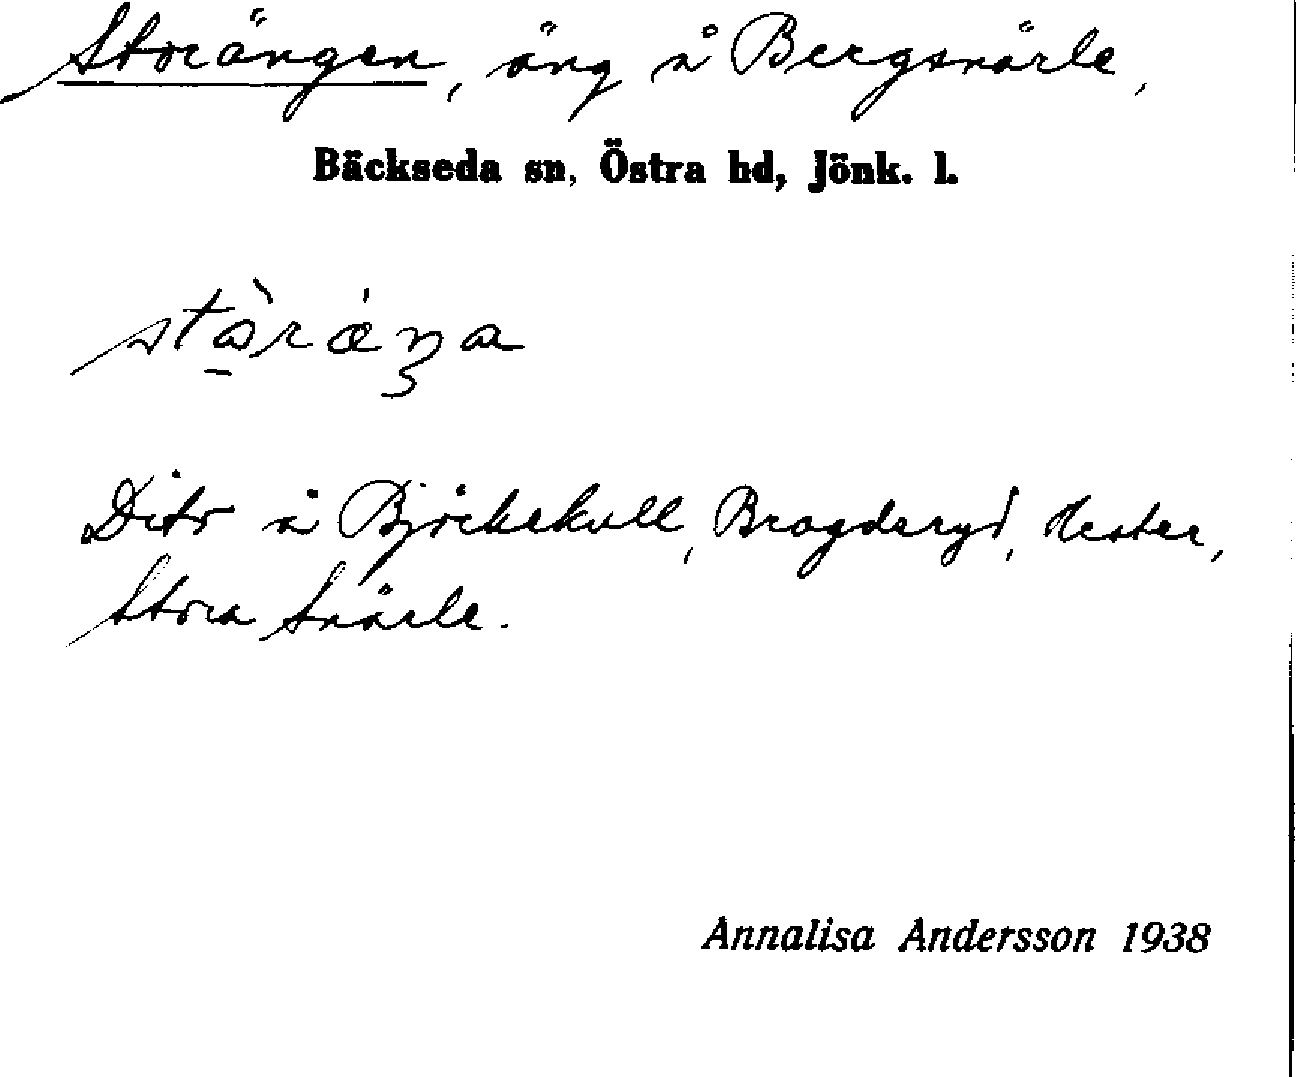 Storängen, äng å Bergsnärle,
Bäckseda sn, Östra hd, Jönk. l.
Dito å Björkekull, Brogdsryd,
Stora Snärle.
Annalisa Andersson 1938